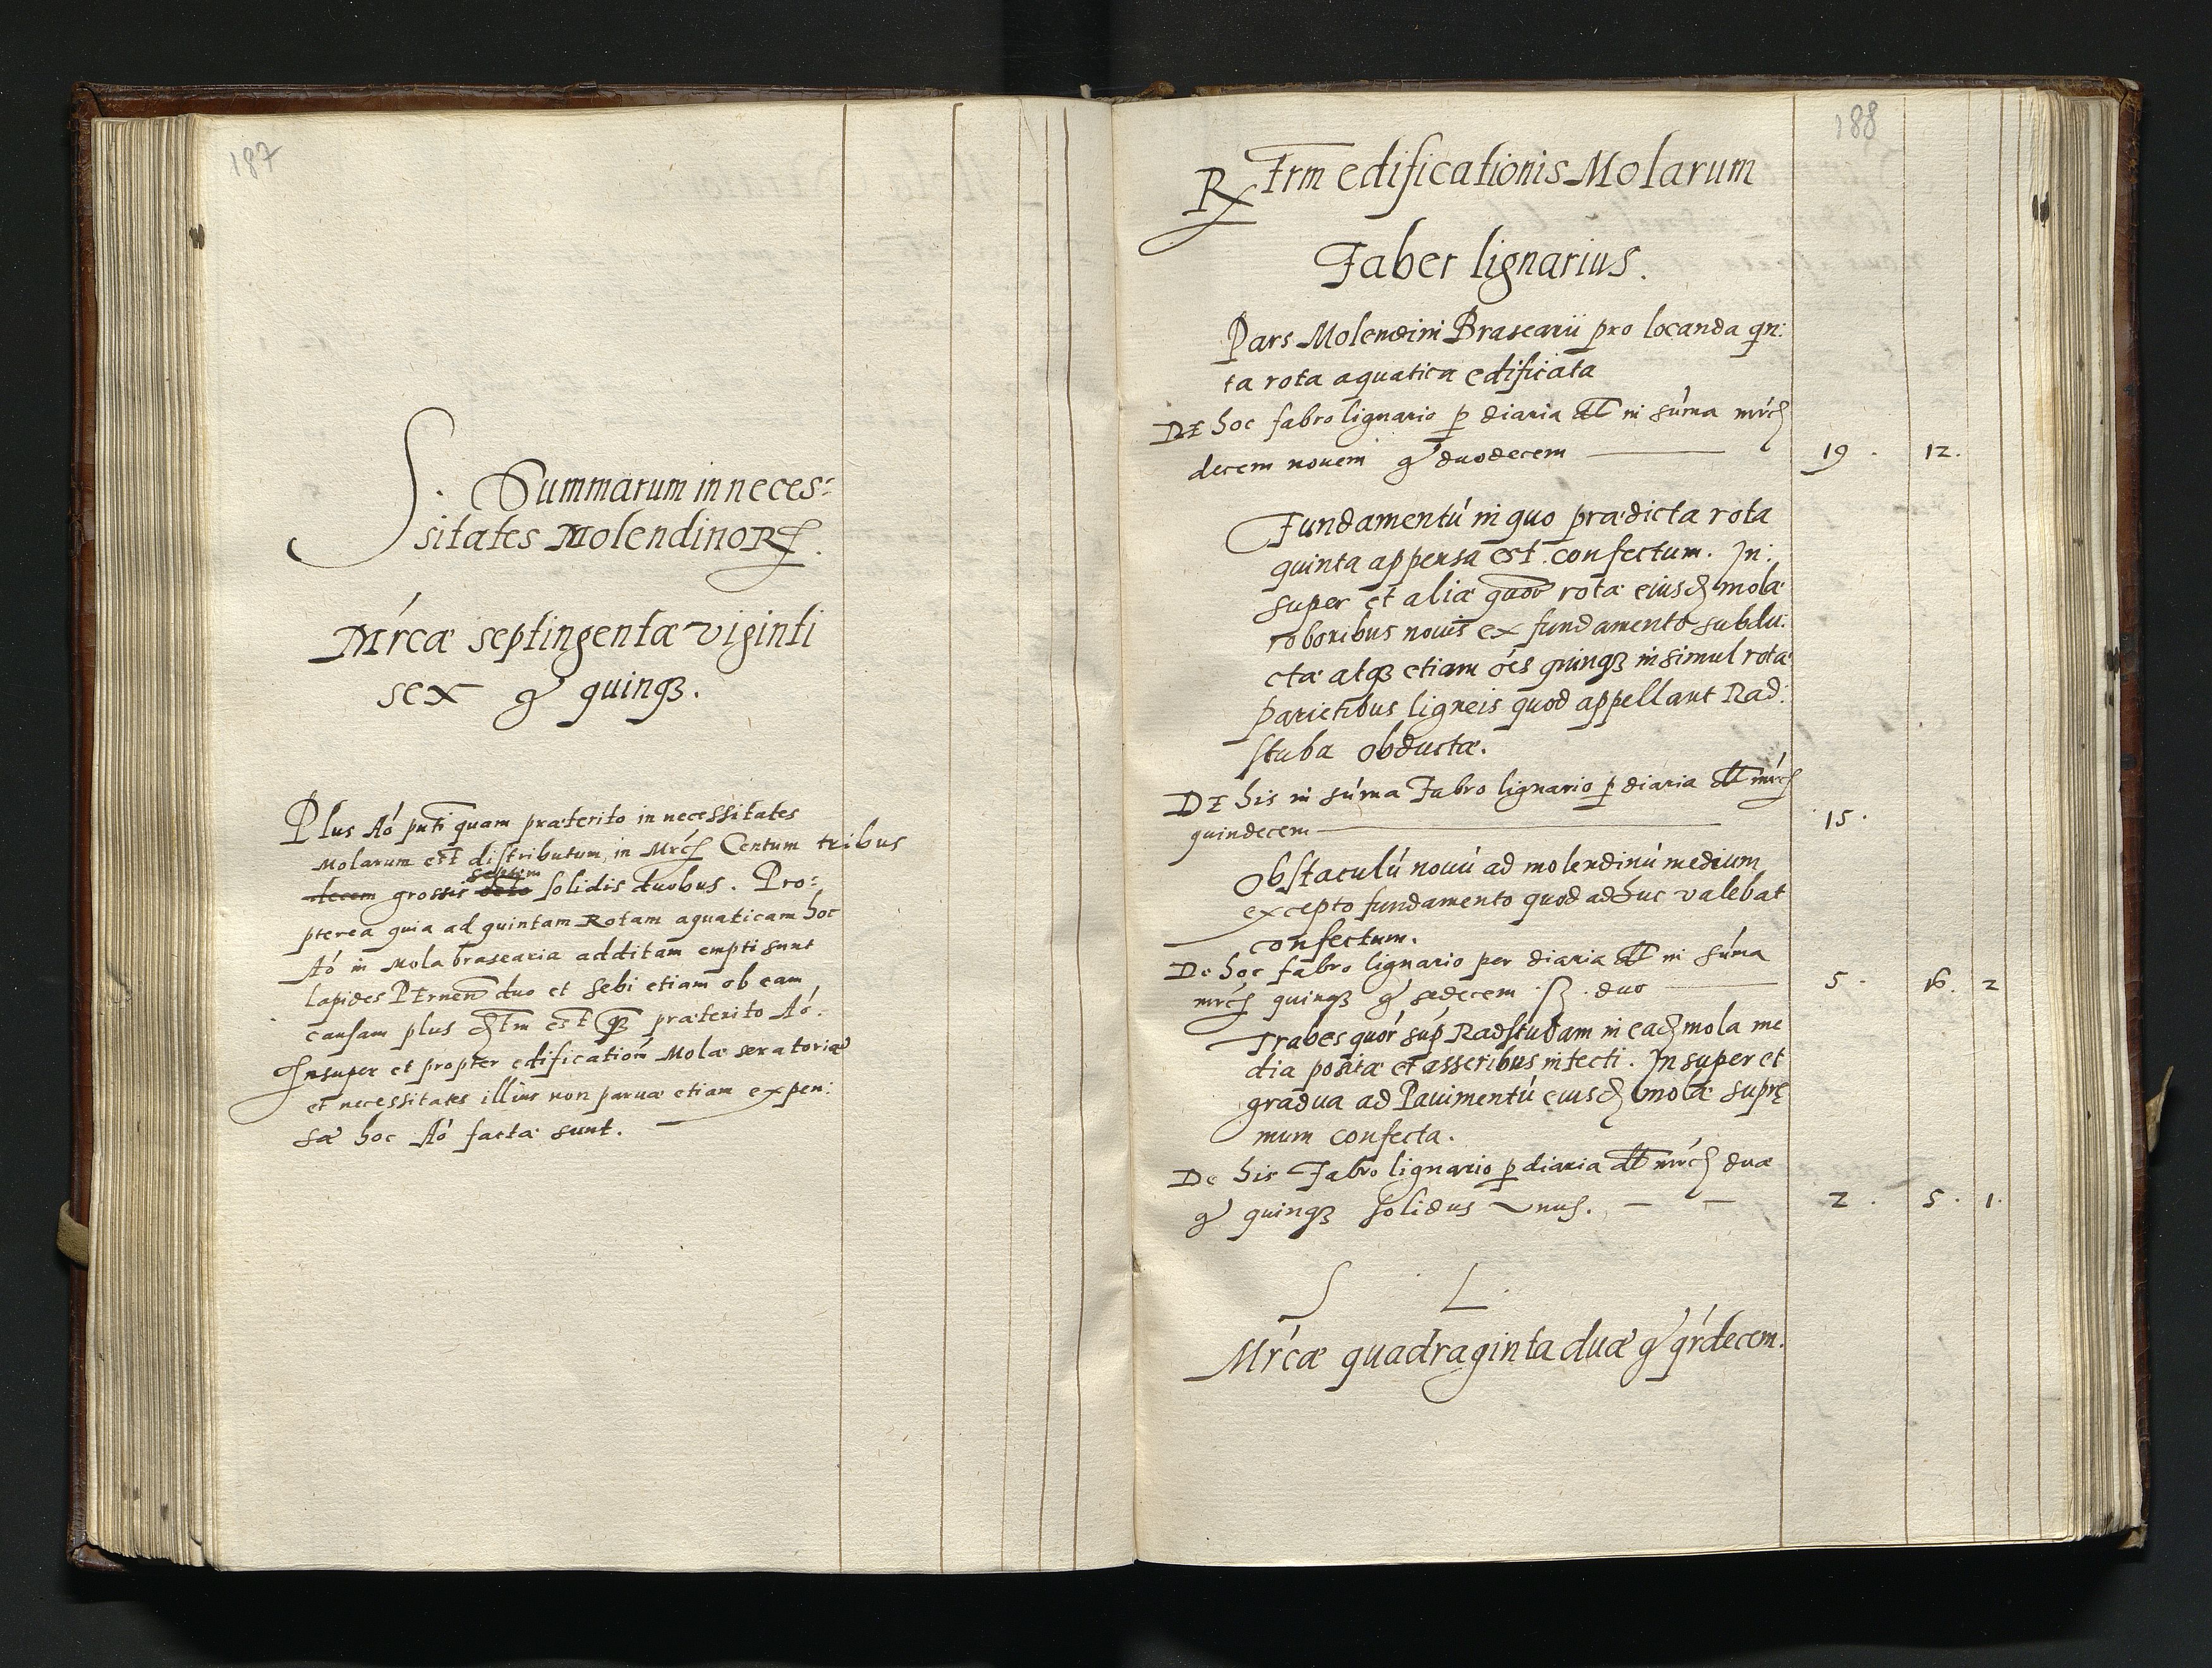 187
S. Summarum in neces:
sitates Molendinorꝝ.
Mŕcæ septingentæ viginti
sex gͬ quinqȝ.
Plus Aó pnti quam præterito in necessitates
Molarum est distributum in Mŕc Centum tribus
decem grossis octo septem solidis duobus. Pro:
pterea quia ad quintam Rotam aquaticam hoc
Aó in Mola brasearia additam empti sunt
lapides Pernen duo et sebi etiam ob eam
causam plus est præterito Aó.
Insuper et propter edification̄ Molæ serratoriæ
et necessitates illius non parvæ etiam expen:
sæ hoc Aó factæ sunt.
188
Rx Frm edificationis Molarum
Faber lignarius.
Pars Molendini Brasearii pro locanda qn:
ta rota aquatica edificata
De hoc fabro lignario ꝑ diaria dt in súma mŕc
decem novem gͬ duodecem 19. 12.
Fundamentú in quo prædicta rota
quinta appensa est confectum. In:
super et aliæ quor rotæ eiusd molæ
roboribus novis ex fundamento subdu:
ctæ atqȝ etiam óes quinqȝ insimul rotæ
parietibus ligneis quod appellant Rad:
stuba obductæ.
De his in súma Fabro lignario ꝑ diaria dt mŕc
quindecem 15.
Obstaculú novú ad molendinú medium
excepto fundamento quod adhuc valebat
confectum.
De hoc fabro lignario per diaria dt in súma
mŕc quinqȝ gͬ sedecem ß. duo 5. 16. 2
Trabes quór súp Radstubam in ead mola me
dia positæ et asseribus intecti. Insuper et
gradua ad Pavimentú eiusd molæ suprę
mum confecta.
De his Fabro lignario ꝑ diaria dt mŕc duæ
gͬ quinqȝ solidus unus. 2. 5. 1.
S L.
Mŕcæ quadraginta duæ gͬ qŕdecem.